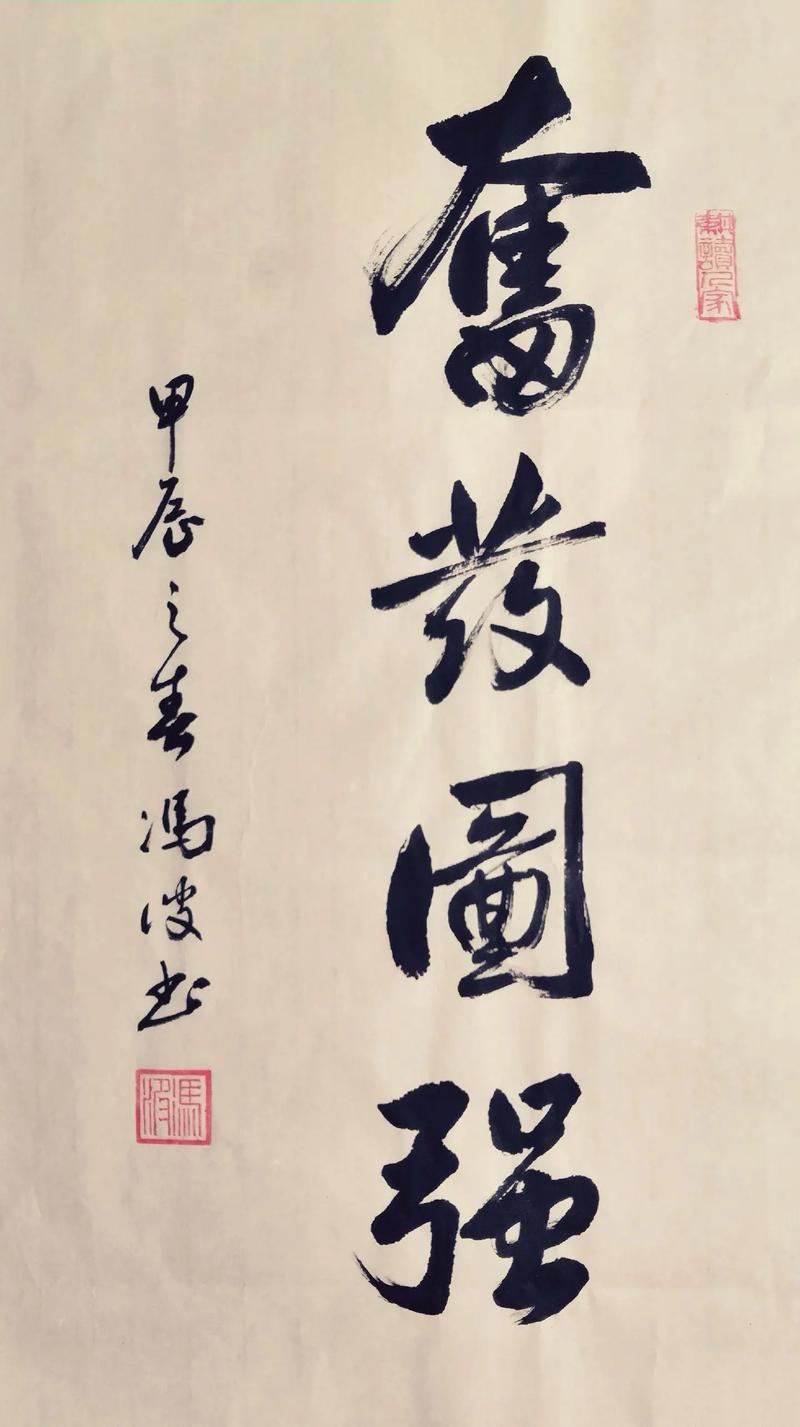 奮發圖强
耕讀人家
甲辰之春馮波书
馮波